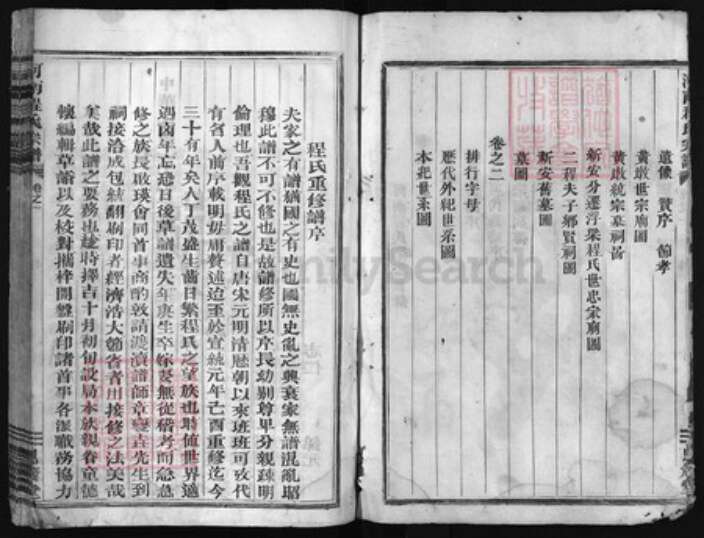 遺像 贊序 節孝
黄墩世宗廟圖
黄墩統宗墓祠畣
新安分遷浮梁程氏世忠宗廟圖
二程夫子鄉賢祠圖
新安舊墓圖
墓圖
卷之二
排行字母
歷代外紀世系圖
本祀世系圖
程氏重修譜序
夫家之有譜猶國之有史也國無史亂之興衰家無譜混亂昭
穆此譜不可不修也是故譜修所以序長幼别尊卑分親疎明
倫理也吾觀程氏之譜自唐宋元明清歷朝以來班班可攷代
有名人前序載明毋庸贅述迨至於宣統元年己酉重修迄今
三十有年矣人丁茂盛生齒日繁程氏之望族也時值世界適
遇 年忘恐日後草譜遺失年庚生卒嫁娶無從稽考而急急
修之族長敢瑛會同首事商酌敦請 譜師章 吉先生到
祠接洽成包統翻刷印者經濟浩大節省者用接修之法美哉
矣哉此譜之要務也趁時擇吉十月初旬設局本族親眷童德
懷編輯草譜以及校對攜梓開盤刷印諸首事各派職務協力
河南程氏宗譜 卷之二
FamilySearch